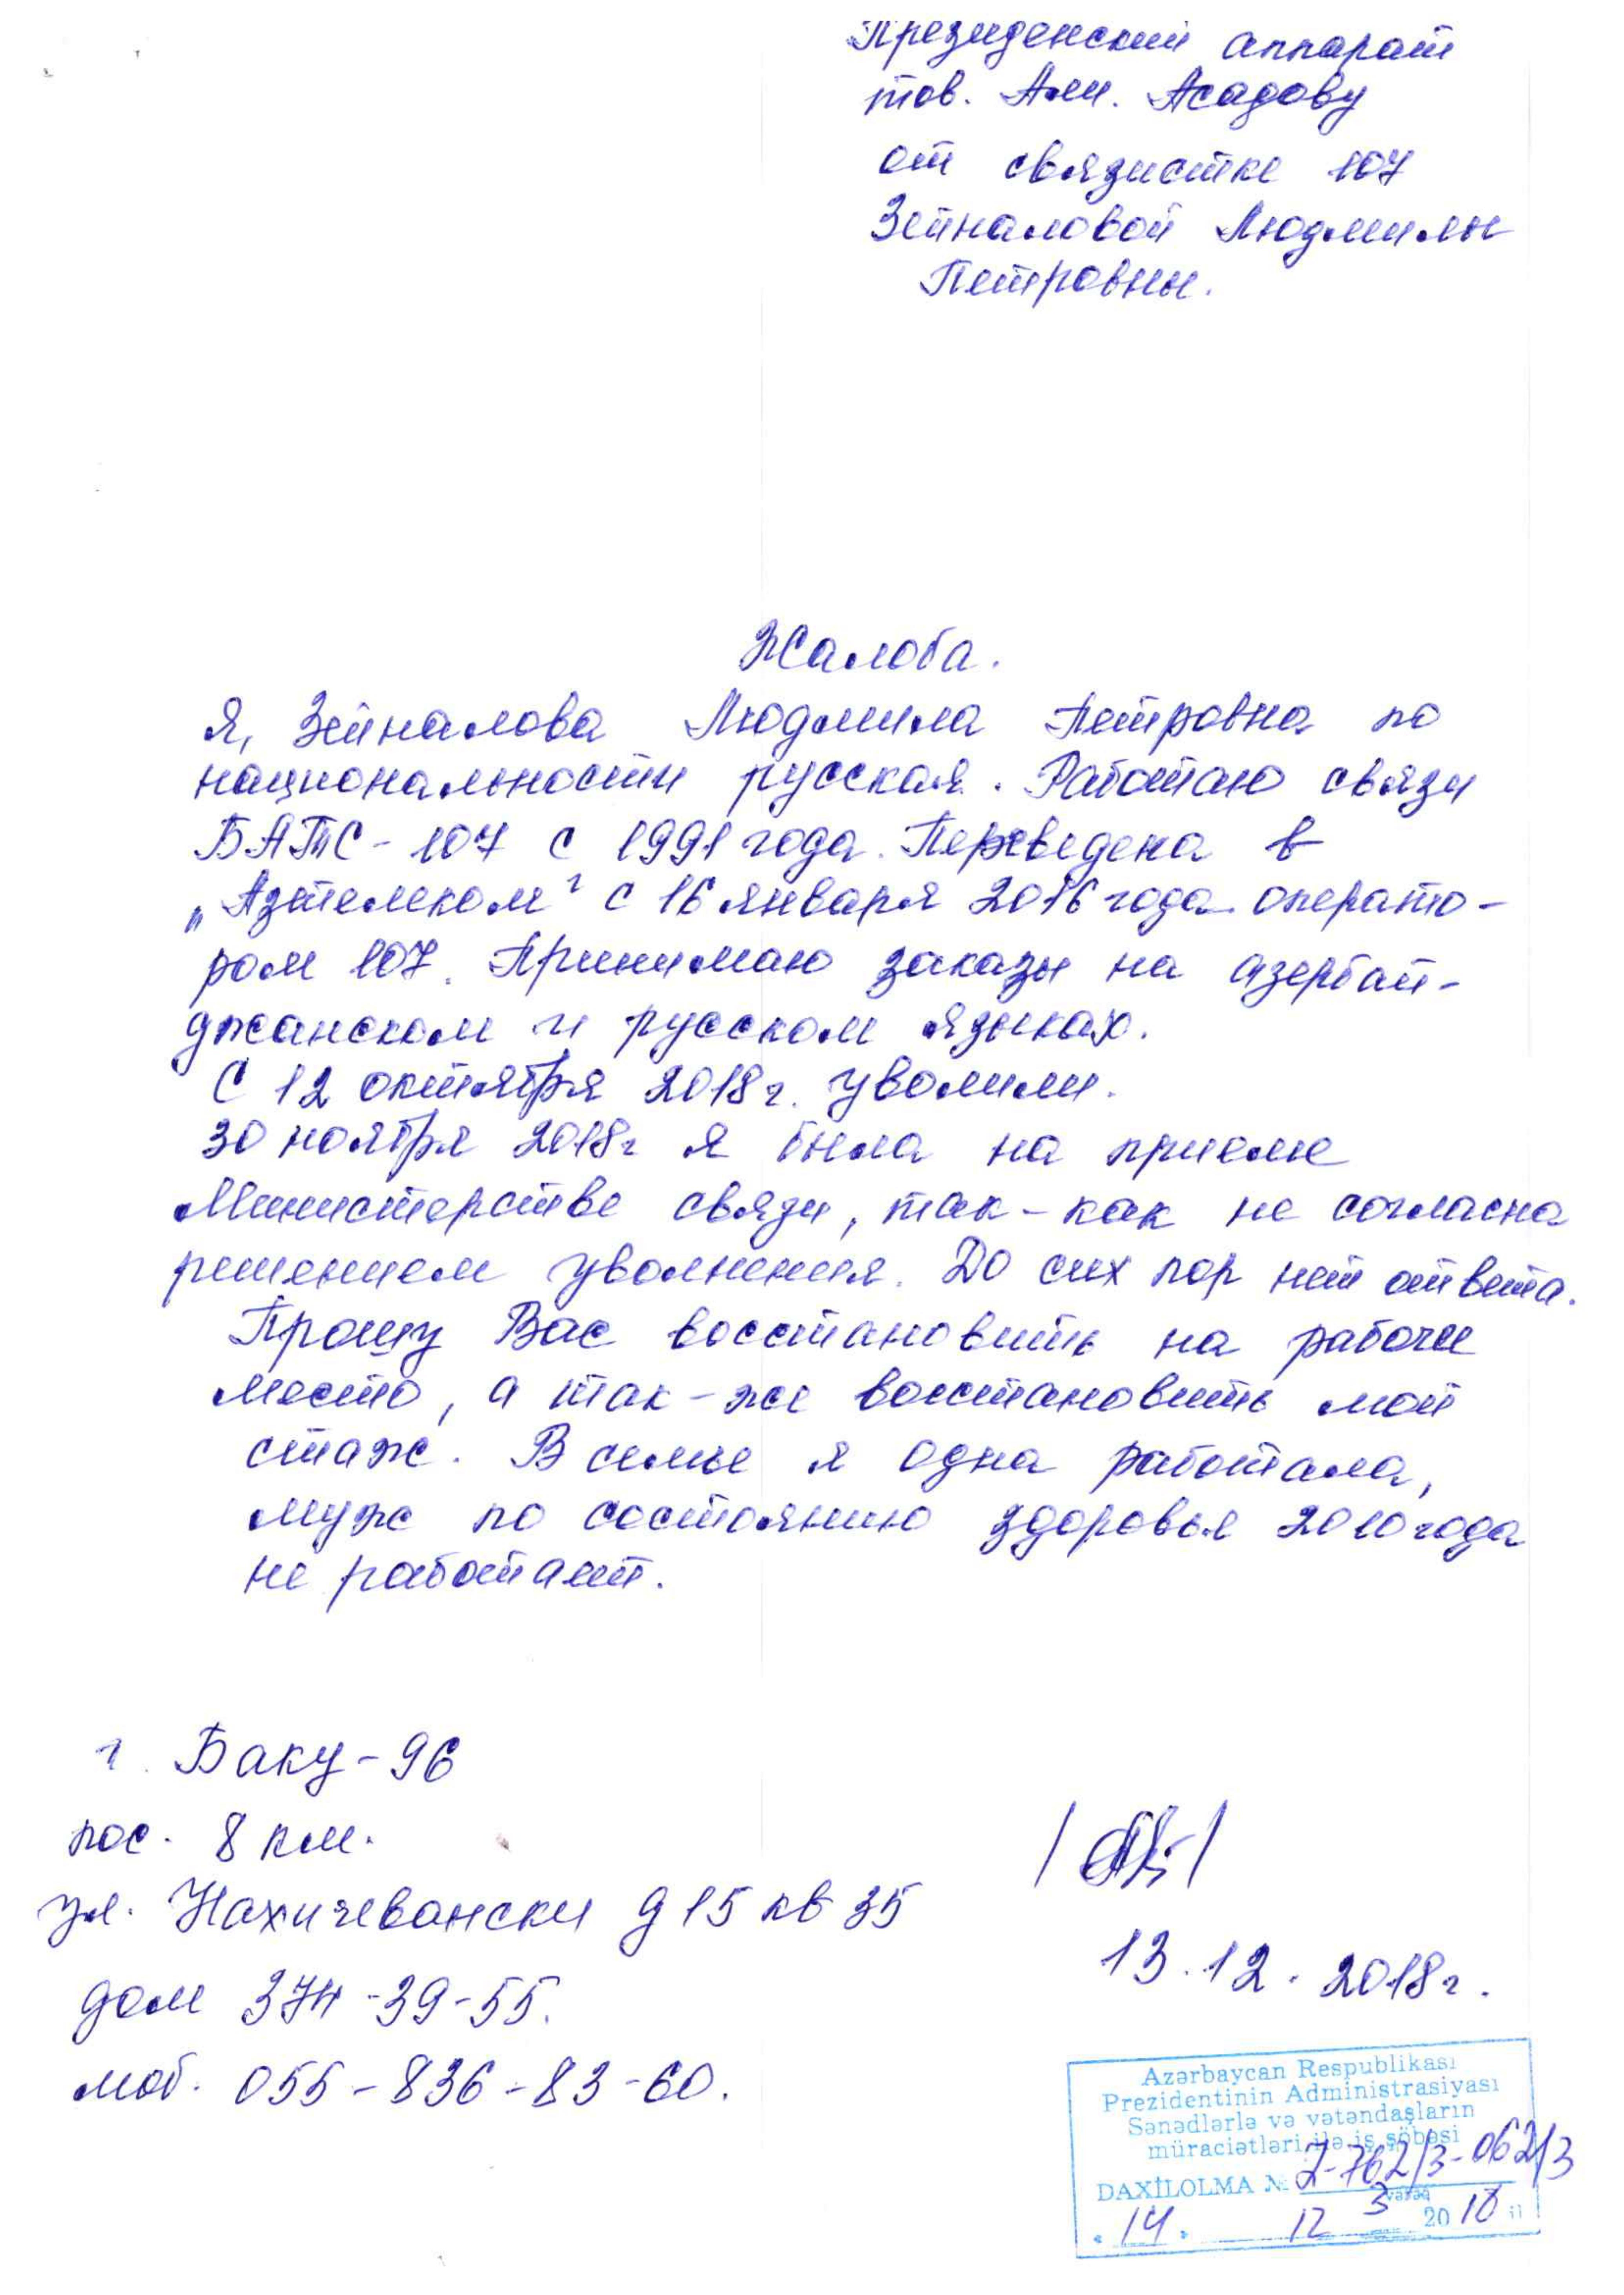 Президенский аппарат
тов. Али. Асадову
от связистке 107
Зейналовой Людмилы
Петровны.
Жалоба.
Я, Зейналова Людмила Петровна по
национальности русская. Работаю связи
БАТС-107 с 1991 года. Переведена в
„Азтелеком" с 16 января 2016 года операто-
ром 107. Принимаю заказы на азербай-
джанском и русском языках.
С 12 октября 2018г. уволили.
30 ноября 2018г я была на приеме
Министерстве связи, так-как не согласна
решением увольнения. До сих пор нет ответа.
Прошу Вас восстановить на рабочее
место, а так-же восстановить мой
стаж. В семье я одна работала,
муж по состоянию здоровья 2010 года
не работает.
г. Баку-96
пос. 8 км.
ул. Нахичевански д 15 кв 35
дом 374-39-55.
моб. 055-836-83-60.
13.12.2018г.
Azərbaycan Respublikası
Prezidentinin Administrasiyası
Sənədlərlə və vətəndaşların
müraciətləri ilə iş şöbəsi
DAXİLOLMA № Z-762/3-062/3
3 vərəq
« 14 » 12 2018 il